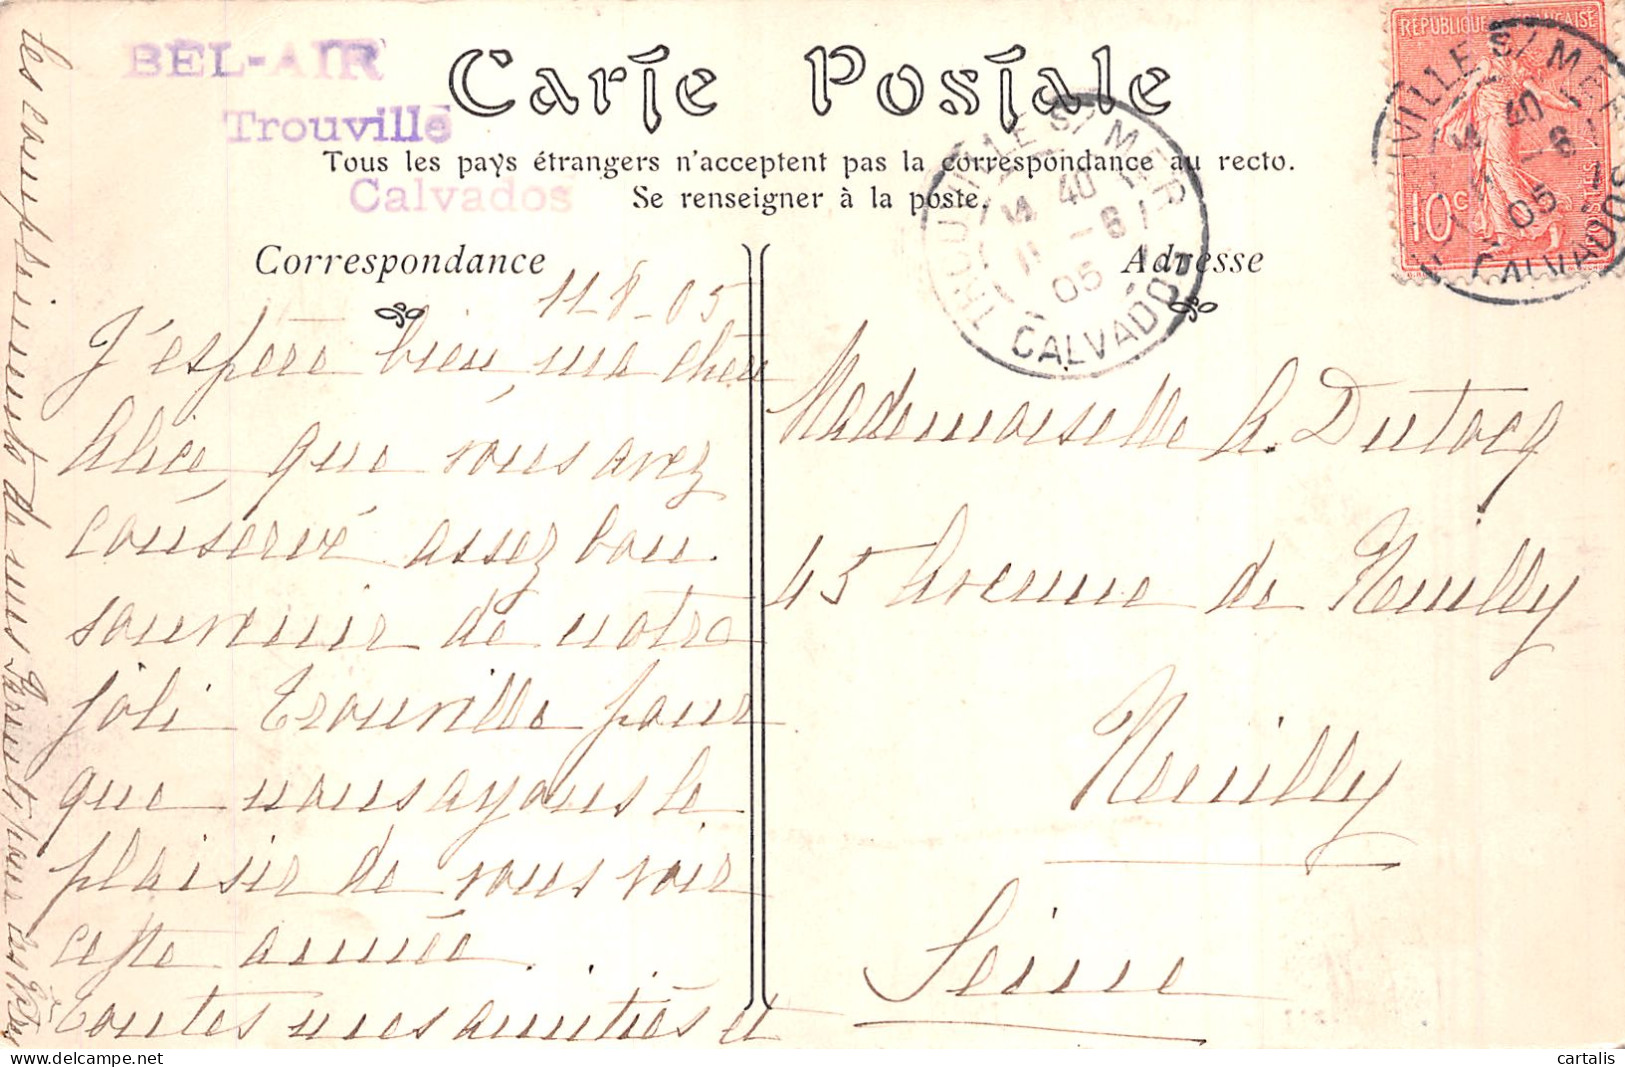 BEL-AIR
Trouville
Calvados
Carte Postale
Tous les pays étrangers n'acceptent pas la correspondance au recto.
Se renseigner à la poste.
Correspondance
Adresse
RÉPUBLIQUE FRANÇAISE
10c
POSTES
TROUVILLE S/ MER
14 40
11 -8
05
CALVADOS
TROUVILLE S/ MER
14 40
11 -8
05
CALVADOS
11-8-05
J'espère bien, ma chère
Alice, que vous avez
conservé assez bon
souvenir de notre
joli Trouville pour
que nous ayons le
plaisir de vous voir
cette année.
Toutes mes amitiés et
les compliments de mes Parents pour
Mademoiselle A. Dutocq
45 Avenue de Neuilly
Neuilly
Seine
cartalis